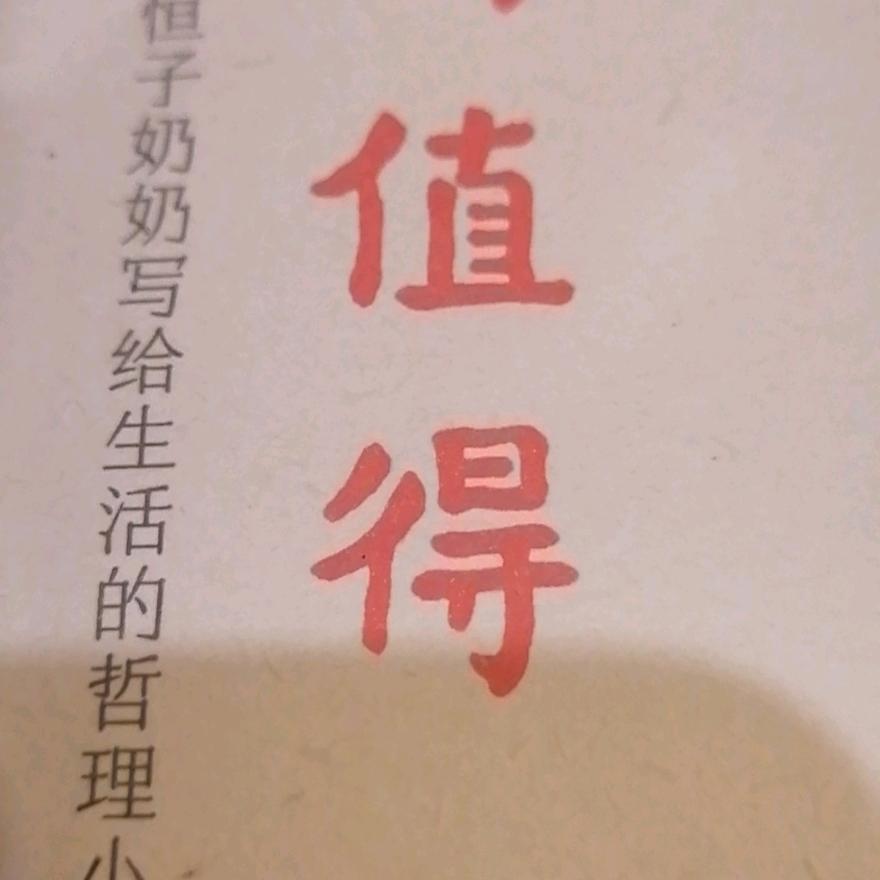 值得
恒子奶奶写给生活的哲理小